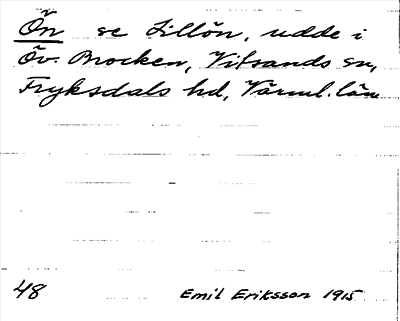 Ön se Lillön, udde i
Öv. Brocken, Vitsands sn,
Fryksdals hd, Värml. län
48 Emil Eriksson 1915